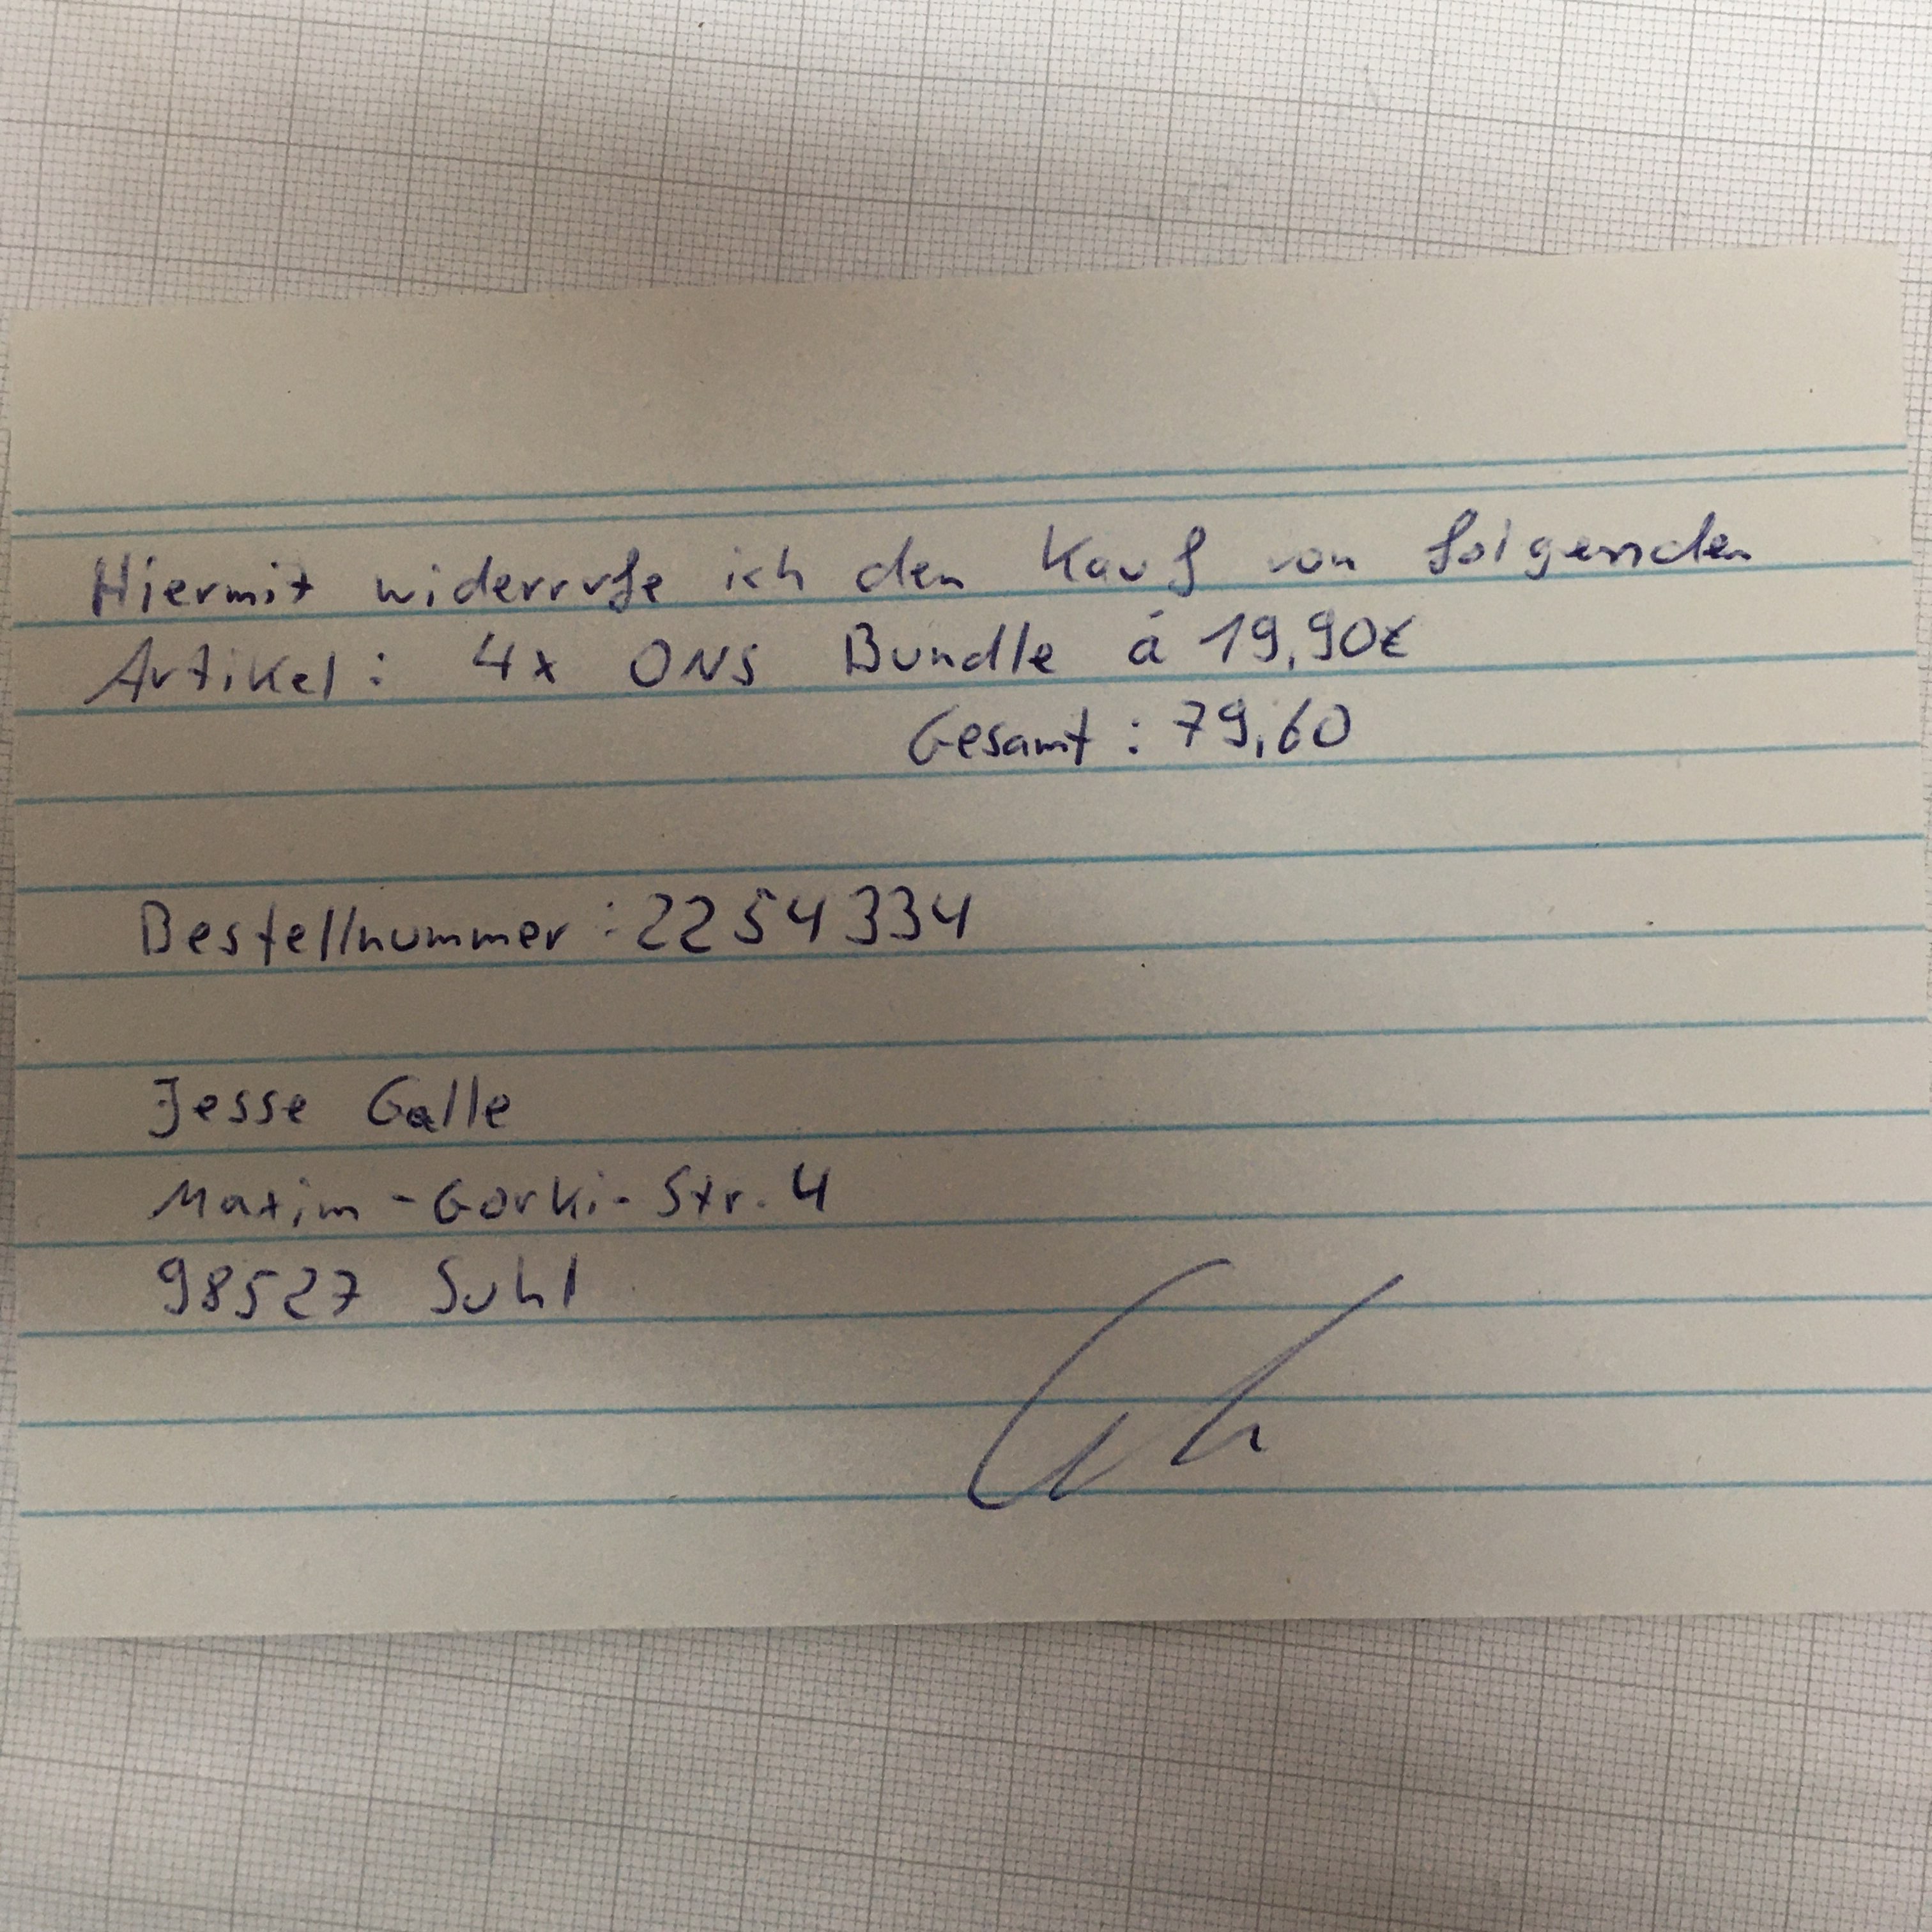 Hiermit widerrufe ich den Kauf von folgenden
Artikel: 4x ONS Bundle á 19,90€
Gesamt: 79,60
Bestellnummer: 2254334
Jesse Galle
Maxim-Gorki-Str. 4
98527 Suhl